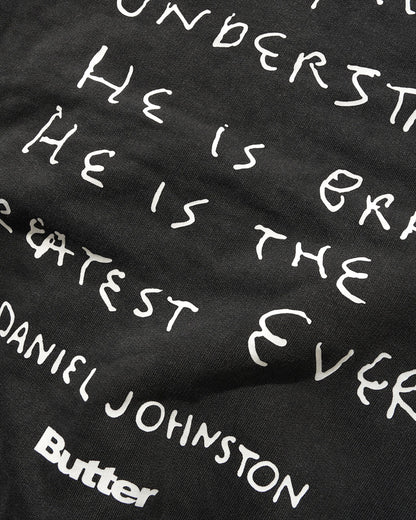 UNDERST
HE IS BRA
HE IS THE
REATEST EVER
DANIEL JOHNSTON
Butter